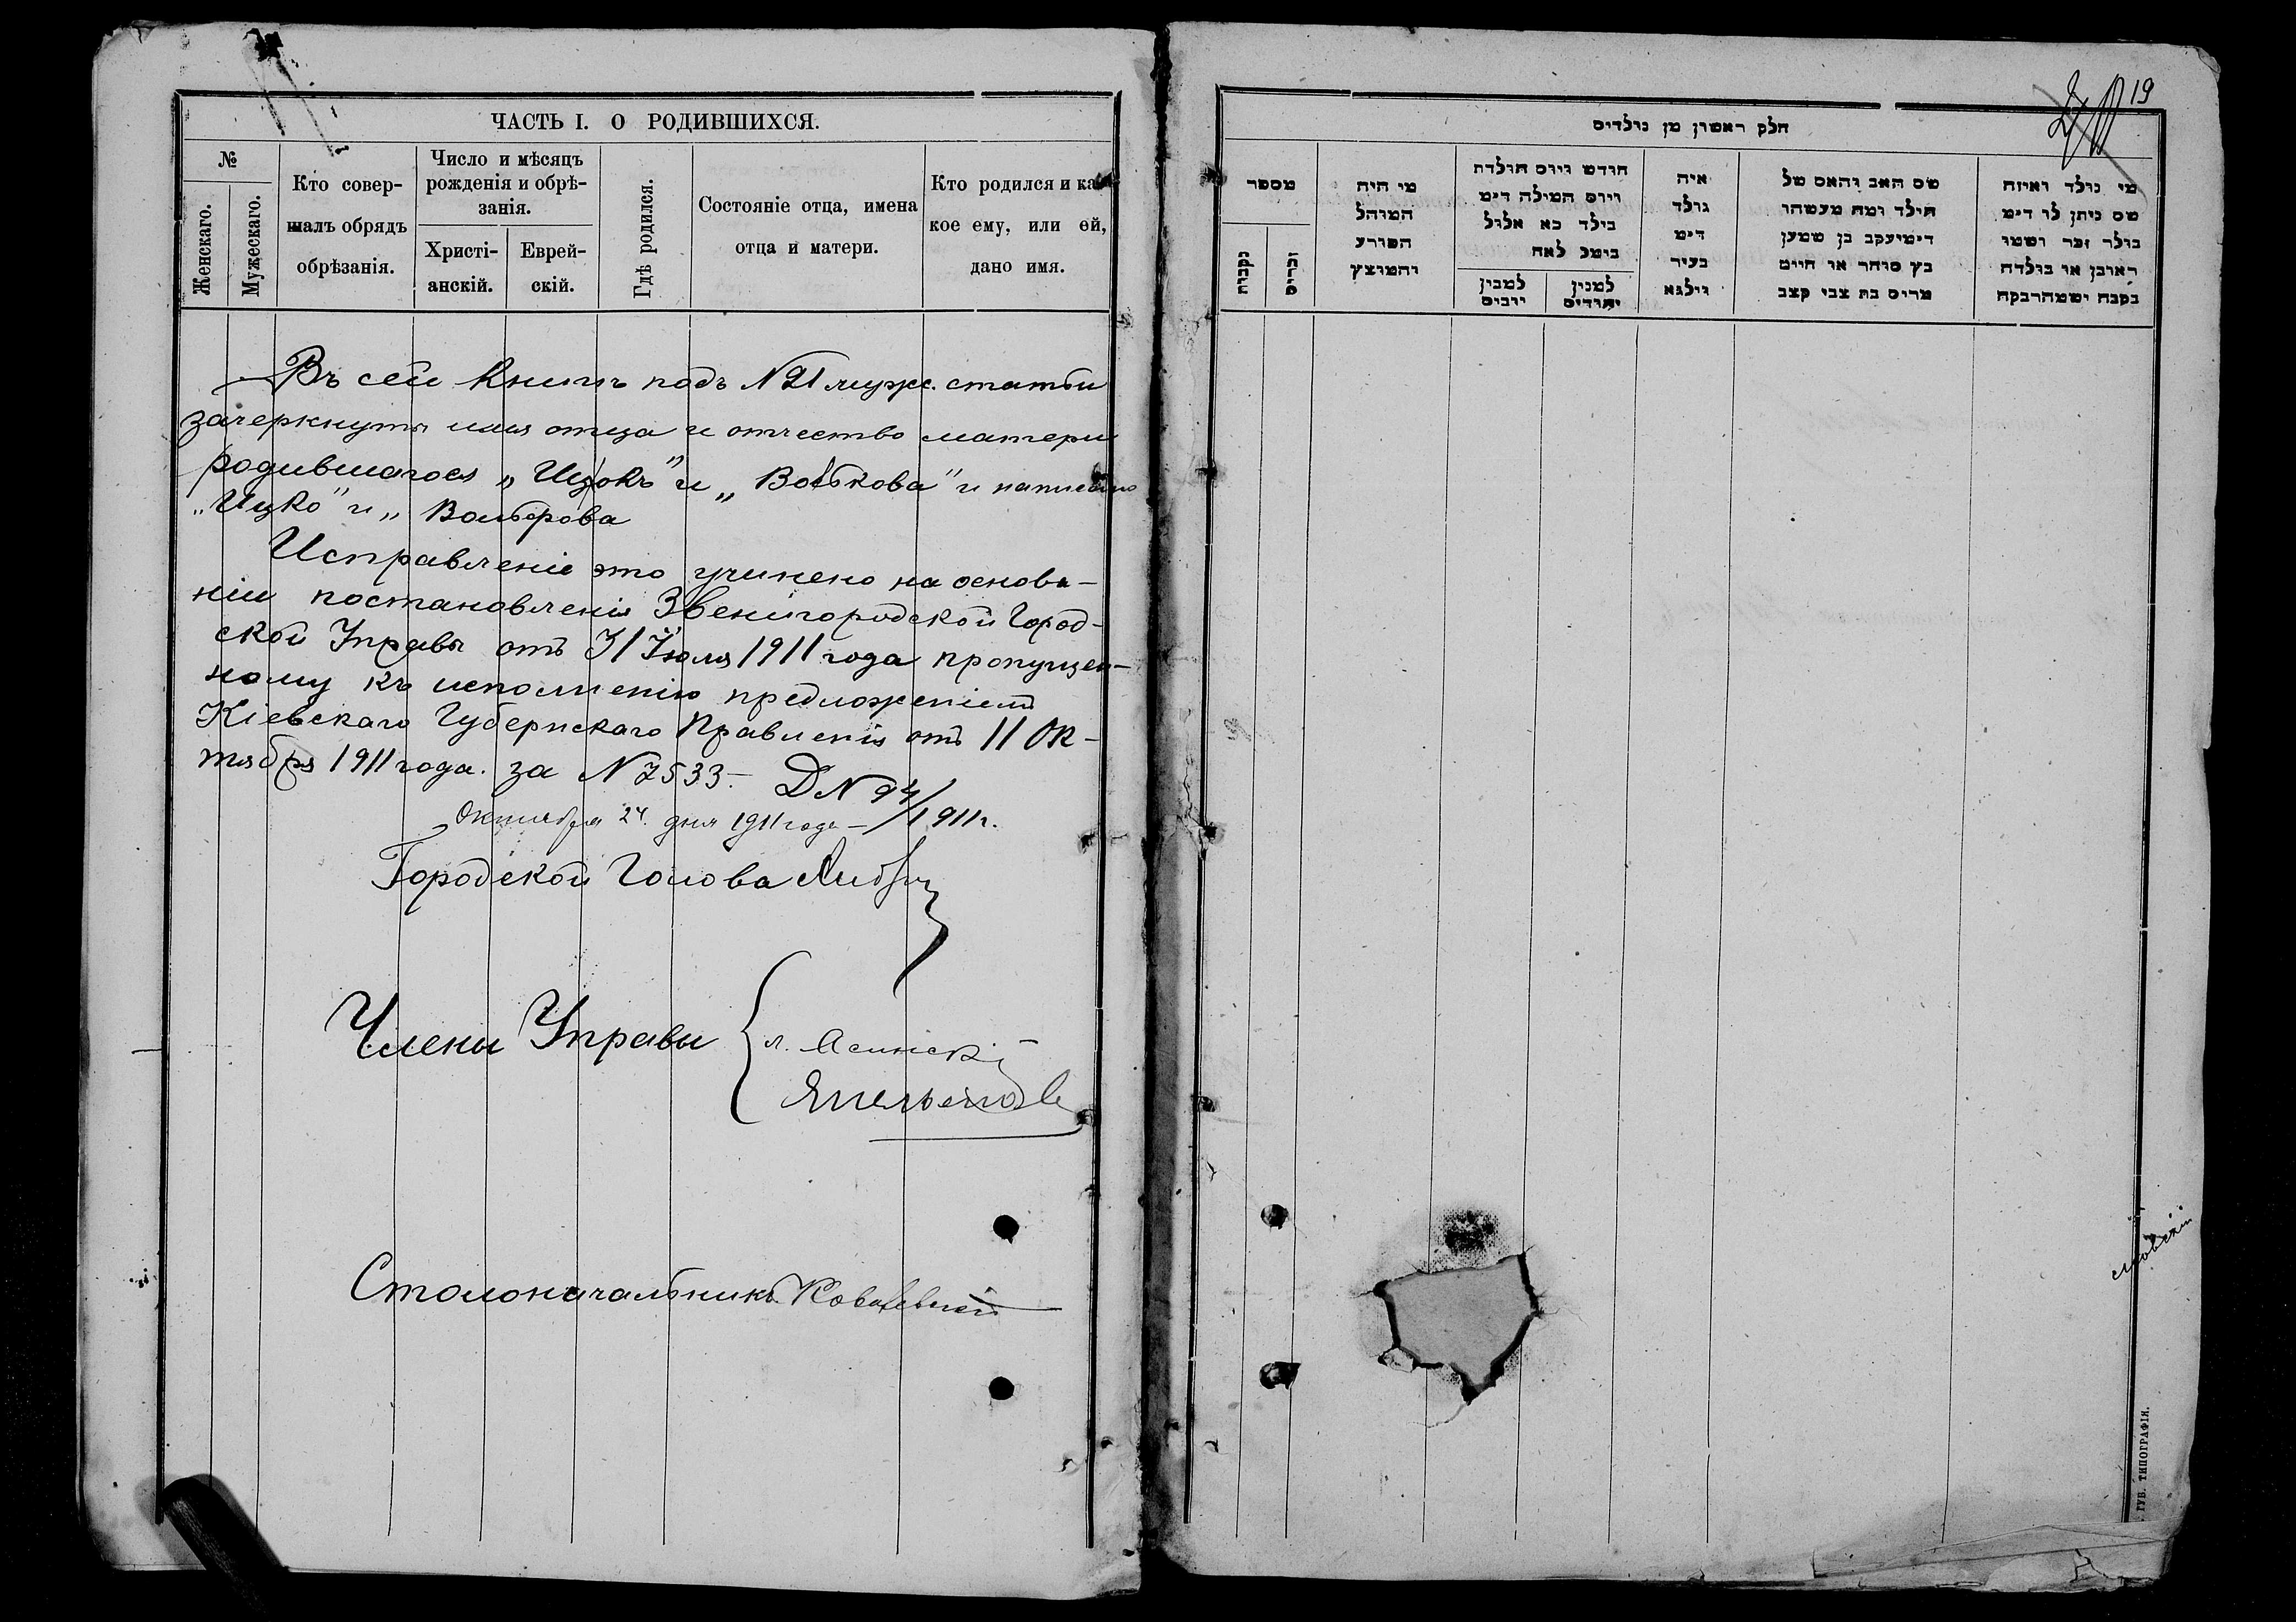 ЧАСТЬ I. О РОДИВШИХСЯ.
№
Женскаго.
Мужескаго.
Кто совер-
шалъ обрядъ
обрѣзанія.
Число и мѣсяцъ
рожденія и обрѣ-
занія.
Христі-
анскій.
Еврей-
скій.
Гдѣ родился.
Состояніе отца, имена
отца и матери.
Кто родился и ка-
кое ему, или ей,
дано имя.
Въ сей книгѣ подъ №21 мужс. статьи
зачеркнуты имя отца и отчество матери
родившагося „Ицокъ" и „Волькова" и написано
„Ицко" и „Вольфова
Исправленіе это учинено на основа-
ніи постановленія Звенигородской Город-
ской Управы отъ 31 Іюля 1911 года пропущен-
ному къ исполненію предложеніемъ
Кіевскаго Губернскаго Правленія отъ 11 Ок-
тября 1911 года. за №7533.- Д№94/1911г.
Октября 24. дня 1911 года -
Городской Голова
Члены Управы
Столоначальникъ Ковалевскій
19
חלק ראשון מן נולדים
מספר
נקבות
זכרים
מי היה
המוהל
הפורע
והמוצץ
חודש ויום הולדת
ויום המילה דימ
בילד כא אלול
בימל לאח
למנין
יובים
למנין
יהודים
איה
נולד
דימ
בעיר
ווילנא
שם האב והאם של
הילד ומה מעשהו
דימיעקב בן שמען
כץ סוחר או חייט
מרים בת צבי קצב
מי נולד ואיזה
שם ניתן לו דימ
נולד זכר ושמו
ראובן או נולדה
נקבה ושמהרבקה
ГУБ. ТИПОГРАФІЯ.